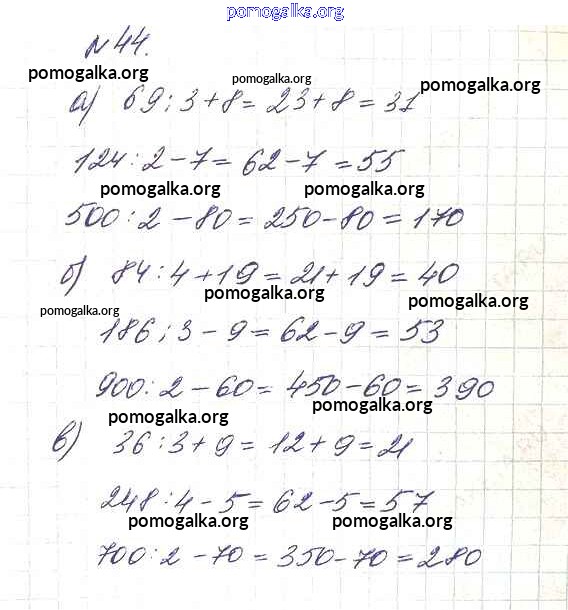 pomogalka.org
№ 44.
pomogalka.org pomogalka.org pomogalka.org
а) 69 : 3 + 8 = 23 + 8 = 31
124 : 2 - 7 = 62 - 7 = 55
pomogalka.org pomogalka.org
500 : 2 - 80 = 250 - 80 = 170
б) 84 : 4 + 19 = 21 + 19 = 40
pomogalka.org pomogalka.org
pomogalka.org
186 : 3 - 9 = 62 - 9 = 53
900 : 2 - 60 = 450 - 60 = 390
pomogalka.org pomogalka.org
в) 36 : 3 + 9 = 12 + 9 = 21
248 : 4 - 5 = 62 - 5 = 57
pomogalka.org pomogalka.org
700 : 2 - 70 = 350 - 70 = 280